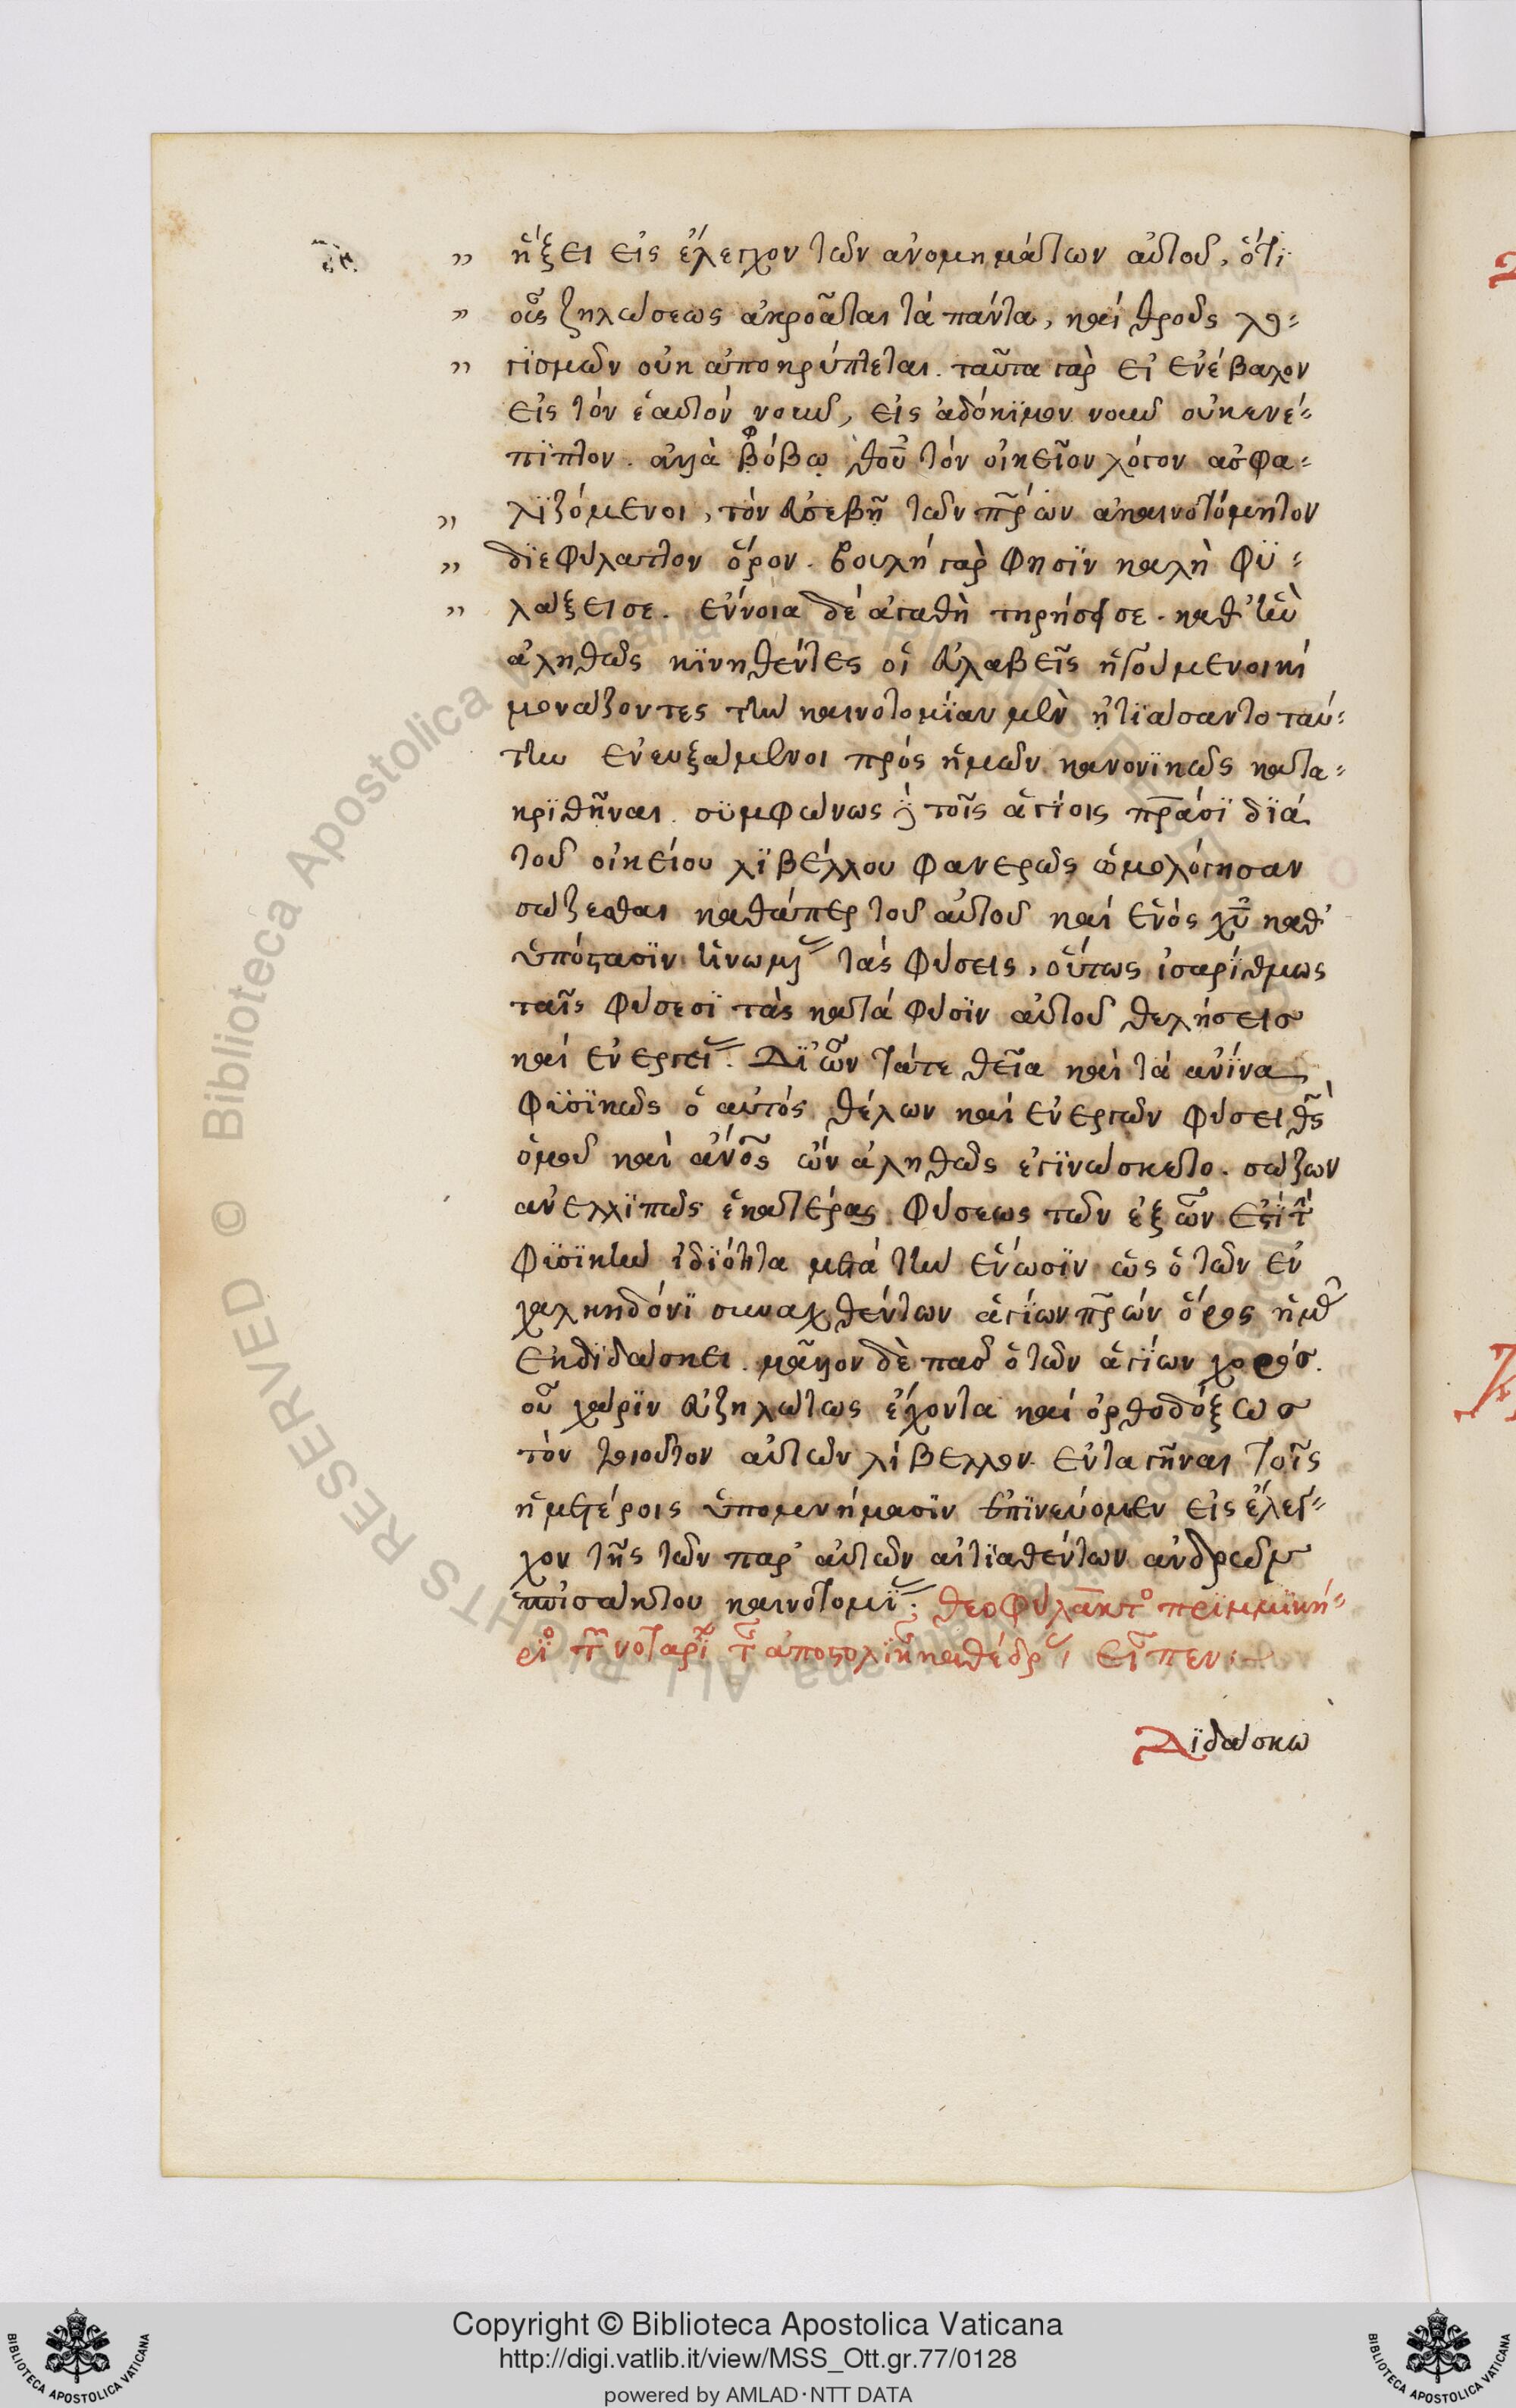 ἥξει εἰς ἔλεγχον τῶν ἀνομημάτων αὐτοῦ, ὅτι
οὖς ζηλώσεως ἀκροᾶται τὰ πάντα, καὶ θροῦς λο-
γϊσμῶν οὐκ ἀποκρύπτεται. ταῦτα γὰρ εἰ ἐνέβαλον
εἰς τὸν ἑαυτὸν νοῦν, εἰς ἀδόκϊμον νοῦν οὐκ ἐνέ-
πϊπτον. ἀλλὰ φόβῳ θυ τὸν οἰκεῖον λόγον ἀσφα-
λϊζόμενοι, τὸν εὐσεβῆ τῶν πρων ἀκαινοτόμητον
διεφύλαττον ὅρον. βουλή γὰρ φησὶν καλὴ φϋ-
λάξει σε. ἔννοια δὲ ἀγαθὴ τηρήσει σε. καθ' ἣν
ἀληθῶς κϊνηθέντες οἱ εὐλαβεῖς ἡγούμενοι καὶ
μονάζοντες τὴν καινοτομίαν μὲν ἠτϊάσαντο ταύ-
την ἐνευξάμενοι πρὸς ἡμῶν κανονϊκῶς κατα-
κρϊθῆναι. συμφώνως δὲ τοῖς ἁγίοις πρασϊ διὰ
τοῦ οἰκείου λϊβέλλου φανερῶς ὡμολόγησαν
σώζεσθαι καθάπερ τοῦ αὐτοῦ καὶ ἑνὸς χυ καθ'
ὑπόστασϊν ἡνωμένας τὰς φύσεις, οὕτως ἰσαρίθμως
ταῖς φύσεσϊ τὰς κατὰ φύσϊν αὐτοῦ θελήσεις
καὶ ἐνεργείας. Δϊ' ὧν τά τε θεῖα καὶ τὰ ανϊνα
φϋσϊκῶς ὁ αὐτὸς θέλων καὶ ἐνεργῶν φύσει θς
ὁμοῦ καὶ ανος ὢν ἀληθῶς ἐγϊνώσκετο. σώζων
ἀνελλϊπῶς ἑκατέρας φύσεως τῶν ἐξ ὧν ἐστὶ τὴν
φϋσϊκὴν ἰδϊότητα μετὰ τὴν ἕνωσϊν ὡς ὁ τῶν ἐν
χαλκηδόνϊ συναχθέντων ἁγίων πρων ὅρος ἡμᾶς
ἐκδϊδάσκει. μᾶλλον δὲ πᾶς ὁ τῶν ἁγϊων χορός.
οὗ χάρϊν εὐζηλώτως ἔχοντα καὶ ὀρθοδόξως
τὸν τοιοῦτον αὐτῶν λίβελλον ἐνταγῆναι τοῖς
ἡμετέροις ὑπομνήμασϊν ἐπϊνεύομεν εἰς ἔλεγ-
χον τῆς τῶν παρ' αὐτῶν αἰτϊαθέντων ἀνδρῶν
ποισάκτου καινοτομϊας. θεοφύλακτος πρϊμμϊκή-
ριος τῶν νοταρίων τῆς ἀποστολικῆς καθέδρας εἶπεν
Διδάσκω
Copyright © Biblioteca Apostolica Vaticana
http://digi.vatlib.it/view/MSS_Ott.gr.77/0128
powered by AMLAD·NTT DATA